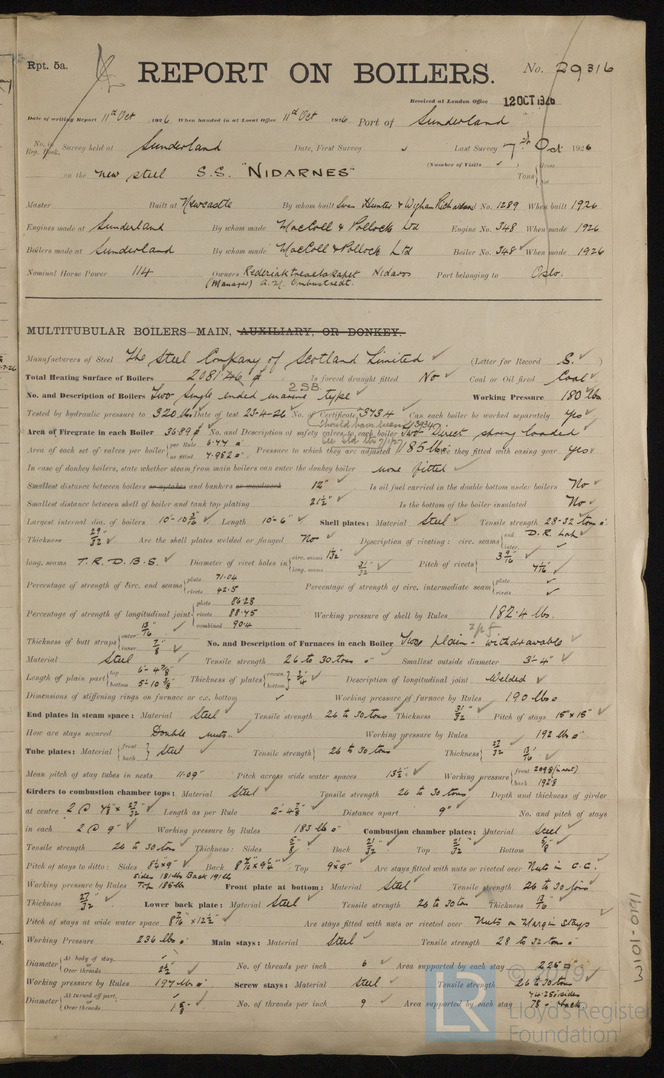 Rpt. 5a.
REPORT ON BOILERS.
No. 29316
Received at London Office 12 OCT 1926
Date of writing Report 11th Oct 1926 When handed in at Local Office 11th Oct 1926 Port of Sunderland
No. in Reg. Book. Survey held at Sunderland Date, First Survey Last Survey 7th Oct 1926
(Number of Visits)
on the new steel S.S. "NIDARNES" Tons
Master Built at Newcastle By whom built Swan Hunter & Wigham Richardson Yard No. 1289 When built 1926
Engines made at Sunderland By whom made MacColl & Pollock Ltd Engine No. 348 When made 1926
Boilers made at Sunderland By whom made MacColl & Pollock Ltd Boiler No. 348 When made 1926
Nominal Horse Power 114 Owners Nidaros Port belonging to Oslo.
(Manager)
MULTITUBULAR BOILERS MAIN, AUXILIARY, OR DONKEY.
Manufacturers of Steel The Steel Company of Scotland Limited (Letter for Record S.)
Total Heating Surface of Boilers 2081 Is forced draught fitted No Coal or Oil fired Coal
2 S.B.
No. and Description of Boilers Two Single ended marine type Working Pressure 180 lbs
Tested by hydraulic pressure to 320 lbs Date of test 23-4-26 No. of Certificate 3934 Can each boiler be worked separately Yes
Area of Firegrate in each Boiler No. and Description of safety valves to each boiler Two Direct spring loaded
Area of each set of valves per boiler per Rule 6.77 as fitted 7.952 Pressure to which they are adjusted 185 lbs Are they fitted with easing gear Yes
In case of donkey boilers, state whether steam from main boilers can enter the donkey boiler none fitted
Smallest distance between boilers or uptakes and bunkers or woodwork 12" Is oil fuel carried in the double bottom under boilers No
Smallest distance between shell of boiler and tank top plating 21½" Is the bottom of the boiler insulated No
Largest internal dia. of boilers 10'-10 3/16" Length 10'-6" Shell plates: Material Steel Tensile strength 28-32 tons
Thickness 29/32 Are the shell plates welded or flanged No Description of riveting: circ. seams end D.R. Lap inter.
long. seams T.R.D.B.S. Diameter of rivet holes in circ. seams 1 1/32 long. seams 31/32 Pitch of rivets 3 9/16 7 1/16
Percentage of strength of circ. end seams plate 71.04 rivets 42.5 Percentage of strength of circ. intermediate seam plate rivets
Percentage of strength of longitudinal joint plate 86.28 rivets 88.45 combined 90.4 Working pressure of shell by Rules 182.4 lbs.
Thickness of butt straps outer 13/16 inner 7/8 No. and Description of Furnaces in each Boiler Two plain - withdrawable
Material Steel Tensile strength 26 to 30 tons Smallest outside diameter 3'-4"
Length of plain part top 6'-4 7/8" bottom 5'-10 5/8" Thickness of plates crown bottom 3/4" Description of longitudinal joint Welded
Dimensions of stiffening rings on furnace or c.c. bottom Working pressure of furnace by Rules 190 lbs
End plates in steam space: Material Steel Tensile strength 26 to 30 tons Thickness 31/32 Pitch of stays 15" x 15"
How are stays secured Double nuts. Working pressure by Rules 192 lbs
Tube plates: Material front back Steel Tensile strength 26 to 30 tons Thickness 27/32 13/16
Mean pitch of stay tubes in nests 11.09" Pitch across wide water spaces 13½" Working pressure front back 192
Girders to combustion chamber tops: Material Steel Tensile strength 26 to 30 tons Depth and thickness of girder
at centre 2 @ 7 5/8 x 27/32 Length as per Rule 2'-4 5/8" Distance apart 9" No. and pitch of stays
in each 2 @ 9" Working pressure by Rules 183 lbs Combustion chamber plates: Material Steel
Tensile strength 26 to 30 tons Thickness: Sides 5/8 Back 21/32 Top 21/32 Bottom 5/8
Pitch of stays to ditto: Sides 8½ x 9" Back Top 9 x 9" Are stays fitted with nuts or riveted over Nuts in C.C.
Working pressure by Rules Sides 181 lbs Back 191 lbs Top 186 lbs Front plate at bottom: Material Steel Tensile strength 26 to 30 tons
Thickness 27/32 Lower back plate: Material Steel Tensile strength 26 to 30 ton Thickness 13/16
Pitch of stays at wide water space 8 7/16 x 12½" Are stays fitted with nuts or riveted over Nuts on Margin Stays
Working Pressure 236 lbs Main stays: Material Steel Tensile strength 28 to 32 tons
Diameter At body of stay, or Over threads 2½" No. of threads per inch 6 Area supported by each stay 225
Working pressure by Rules 197 lbs Screw stays: Material Steel Tensile strength 26 to 30 tons
Diameter At turned off part, or Over threads 1 5/8 No. of threads per inch 9 Area supported by each stay 76.25 sides 78 back
W101-0191
© 2019
LR
Lloyd's Register
Foundation